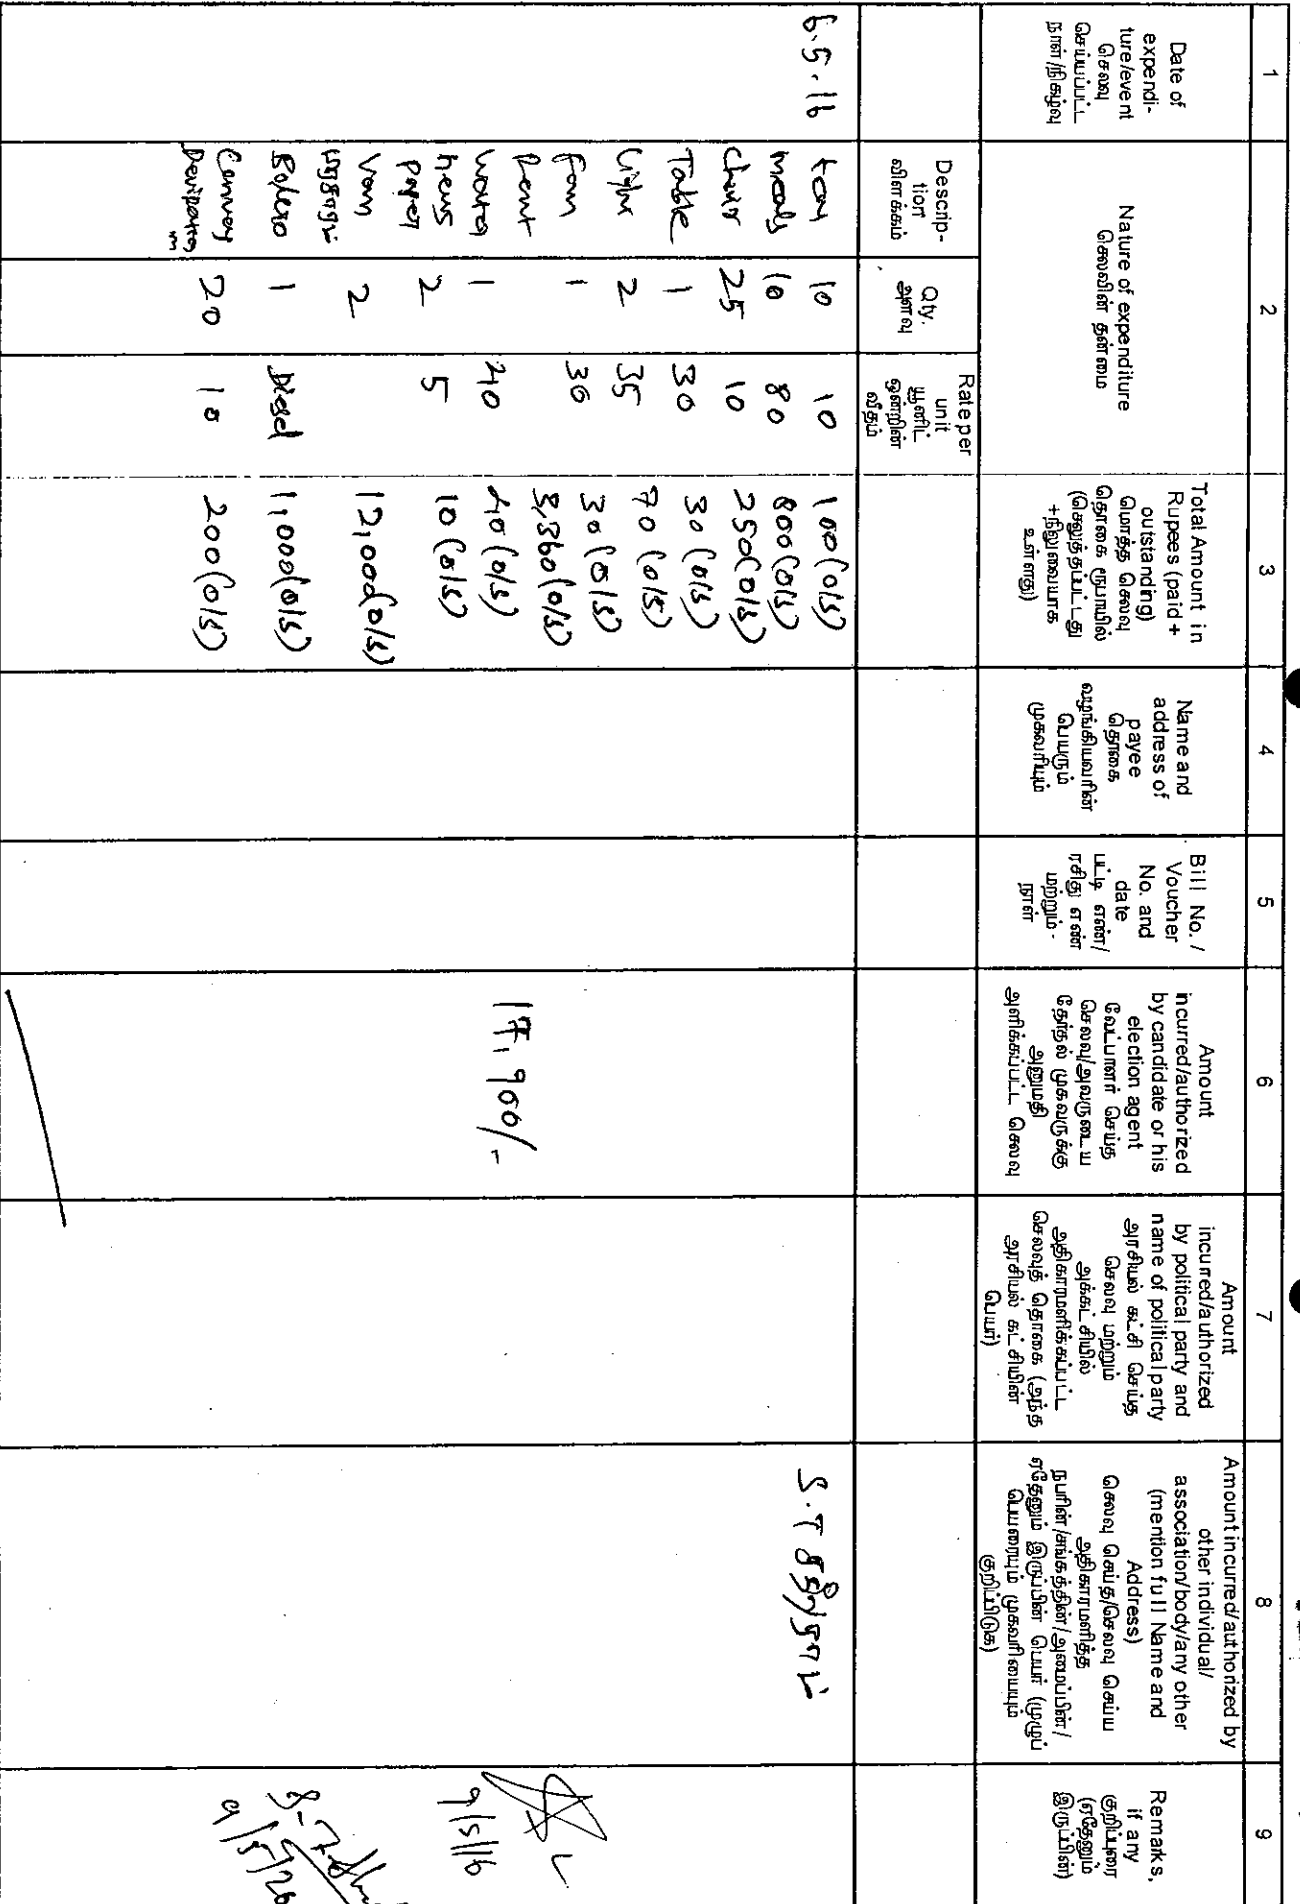 1
2
3
4
5
6
7
8
9
Date of
expendi-
ture/event
செலவு
செய்யப்பட்ட
நாள்/நிகழ்வு
Nature of expenditure
செலவின் தன்மை
Total Amount in
Rupees (paid +
outstanding)
மொத்த செலவு
தொகை ரூபாயில்
(செலுத்தப்பட்டது
+நிலுவையாக
உள்ளது)
Name and
address of
payee
தொகை
வழங்கியவரின்
பெயரும்
முகவரியும்
Bill No. /
Voucher
No. and
date
பட்டி எண்/
ரசிது எண்
மற்றும்
நாள்
Amount
incurred/authorized
by candidate or his
election agent
வேட்பாளர் செய்த
செலவு/அவருடைய
தேர்தல் முகவருக்கு
அனுமதி
அளிக்கப்பட்ட செலவு
Amount
incurred/authorized
by political party and
name of political party
அரசியல் கட்சி செய்த
செலவு மற்றும்
அக்கட்சியில்
அதிகாரமளிக்கப்பட்ட
செலவுத் தொகை (அந்த
அரசியல் கட்சியின்
பெயர்)
Amount incurred/authorized by
other individual/
association/body/any other
(mention full Name and
Address)
செலவு செய்த/செலவு செய்ய
அதிகாரமளித்த
நபரின்/சங்கத்தின்/அமைப்பின்/
ஏதேனும் இருப்பின் பெயர் (முழுப்
பெயரையும் முகவரியையும்
குறிப்பிடுக)
Remarks,
if any
குறிப்புரை
(ஏதேனும்
இருப்பின்)
Descrip-
tion
விளக்கம்
Qty.
அளவு
Rate per
unit
யூனிட்
ஒன்றின்
வீதம்
6.5.16
tea 10 10 100(0/5)
meals 10 80 800(0/5)
chair 25 10 250(0/5)
Table 1 30 30(0/5)
Light 2 35 70(0/5)
Fan 1 30 30(0/5)
Rent 3,360(0/5)
Water 1 40 40(0/5)
News
paper 2 5 10(0/5)
Van
2 12,000(0/5)
Bolero 1 Diesel 1,000(0/5)
20 10 200(0/5)
17,900/-
S.T
9/5/16